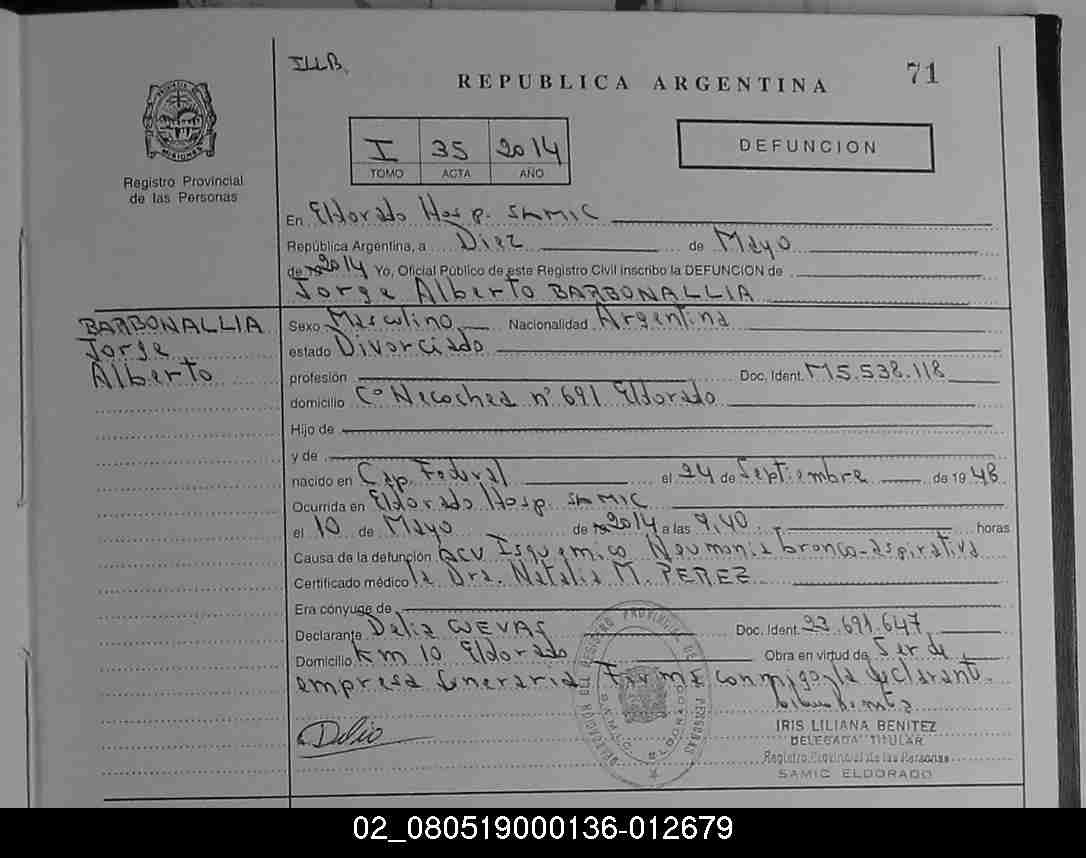 ILLB.
REPUBLICA ARGENTINA
71
I 35 2014
TOMO ACTA AÑO
DEFUNCION
MISIONES
Registro Provincial
de las Personas
En Eldorado Hosp. SAMIC
República Argentina, a Diez de Mayo
de 2014 Yo, Oficial Público de este Registro Civil inscribo la DEFUNCION de
Jorge Alberto BARBONALLIA
BARBONALLIA
Jorge
Alberto
Sexo Masculino Nacionalidad Argentina
estado Divorciado
profesión Doc. Ident. M5.538.118
domicilio Cº Necochea nº 691 Eldorado
Hijo de
y de
nacido en Cap. Federal el 24 de Septiembre de 1948
Ocurrida en Eldorado Hosp. SAMIC
el 10 de Mayo de 2014 a las 9,40 horas
Causa de la defunción ACV Isquemico Neumonia bronco-aspirativa
Certificado médico la Dra. Natalia M. PEREZ
Era cónyuge de
Declarante Delia CUEVAS Doc. Ident. 27.691.647
Domicilio Km 10 Eldorado Obra en virtud de Ser de
empresa funeraria. Firma conmigo la declarant.
Delia
IRIS LILIANA BENITEZ
DELEGADA TITULAR
Registro Provincial de las Personas
SAMIC ELDORADO
02_080519000136-012679